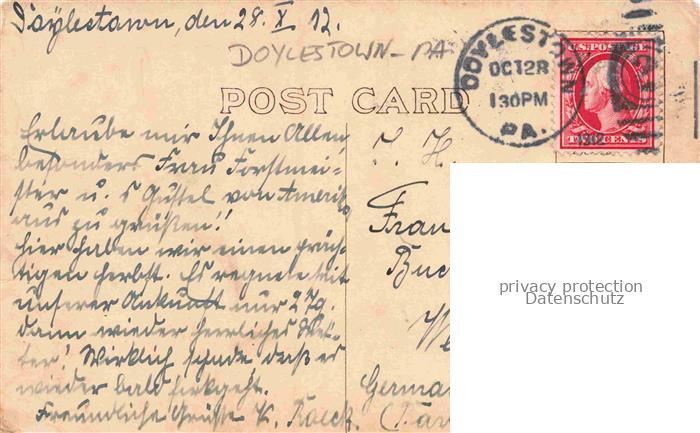 Doylestown, den 28. X 12.
DOYLESTOWN - PA
POST CARD
DOYLESTOWN
OCT 28
130PM
PA.
U.S. POSTAGE
TWO CENTS
1902
Erlaube mir Ihnen Allen
besonders Frau Forstmei-
ster u. s Gustel von Amerika
aus zu grüßen!!
hier haben wir einen präch-
tigen herbst. Es regnete seit
unserer Ankunft nur 2 Tg.
dann wieder herrliches Wet-
ter! Wirklich schade daß es
wieder bald
Freundliche Grüße
Frau
German
privacy protection
Datenschutz